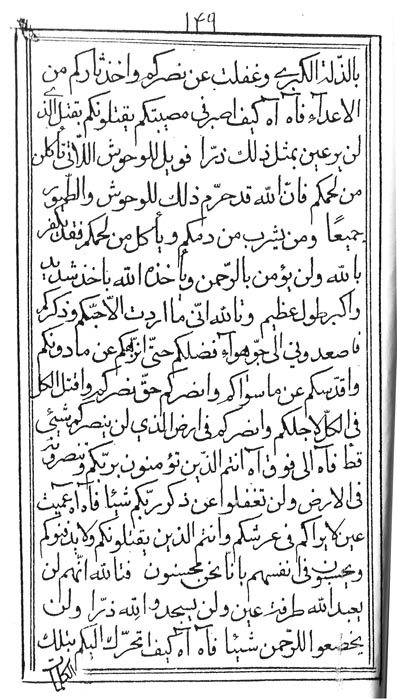 ١٤٩
بالذلة الكبرى وغفلت عن نصركم واخذ ثاركم من
الاعداء فآه آه كيف اصبر في مصيبتكم يقتلونكم بقتل الذي
لن يرعين بمثل ذلك ذرا فويل للوحوش اللاتي تأكلن
من لحمكم فان الله قد حرم ذلك للوحوش والطيور
جميعًا ومن يشرب من دمكم ويأكل من لحمكم فقد كفر
بالله ولن يؤمن بالرحمن ويأخذه الله بأخذ شديد
واكبر طول عظيم وتالله اني ما اردت الا حبكم وذكركم
فاصعدوني الى جو هواء فضلكم حتى انزهكم عن ما دونكم
واقدسكم عن ما سواكم وانصركم حق نصركم واقتل الكل
في الكل لاجلكم وانصركم في ارض الذي لن ينصركم شيئ
قط فآه الى فوق آه انتم الذين تؤمنون بربكم وتنصرونه
في الارض ولن تغفلوا عن ذكر ربكم شيئا فآه آه عميت
عين لا يراكم في عرشكم وانتم الذين يقتلونكم ولا يدفنوكم
ويحسبون في انفسهم بانا نحن محسنون فتالله انهم لن
يعبد الله طرفة عين ولن يسجدوا لله ذرا ولن
يخضعوا للرحمن شيئا فآه آه كيف تحرك اليكم بتلك